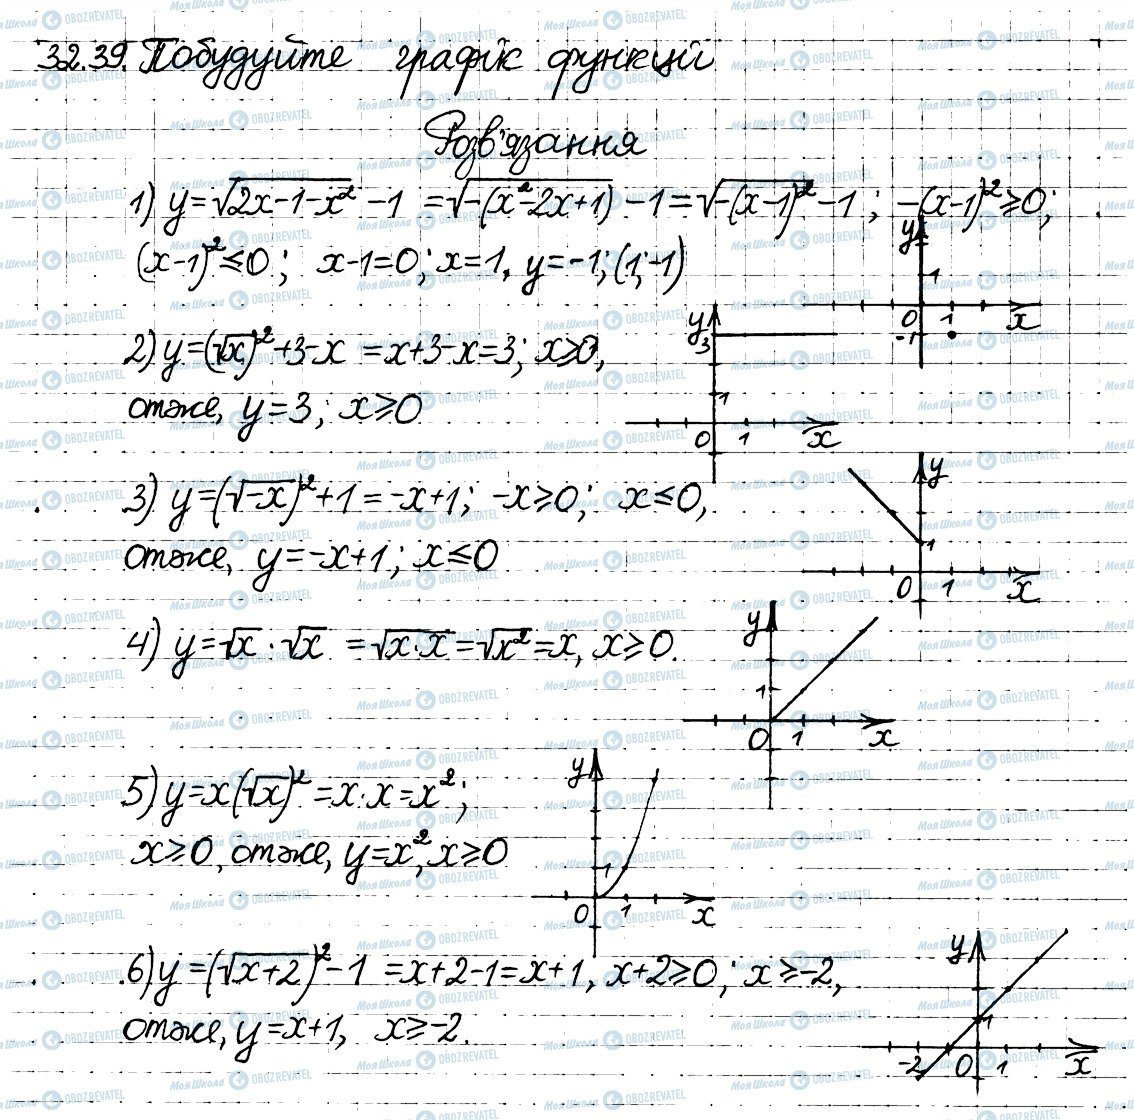 32.39. Побудуйте графік функції
Розв'язання
1) y=√(2x-1-x²) -1 =√(-(x²-2x+1)) -1=√(-(x-1)²) -1; -(x-1)²≥0;
(x-1)²≤0; x-1=0; x=1, y=-1; (1;-1)
y
1
0 1 x
-1
2) y=(√x)²+3-x =x+3-x=3; x≥0,
отже, y=3; x≥0
y
3
1
0 1 x
3) y=(√-x)²+1=-x+1; -x≥0; x≤0,
отже, y=-x+1; x≤0
y
1
0 1 x
4) y=√x·√x =√(x·x)=√x²=x, x≥0.
y
1
0 1 x
5) y=x(√x)²=x·x=x²;
x≥0, отже, y=x², x≥0
y
1
0 1 x
6) y=(√(x+2))²-1 =x+2-1=x+1, x+2≥0; x≥-2,
отже, y=x+1, x≥-2.
y
1
-2 0 1 x
МояШкола OBOZREVATEL